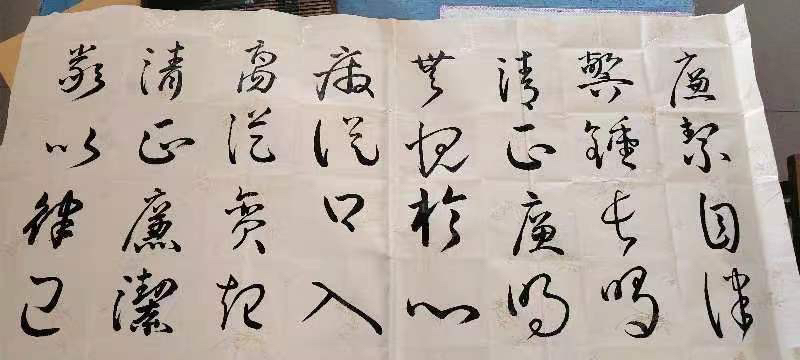 廉絜自律
警鍾長鳴
清正廉明
無愧於心
病從口入
從貪起
清正廉潔
嚴以律己